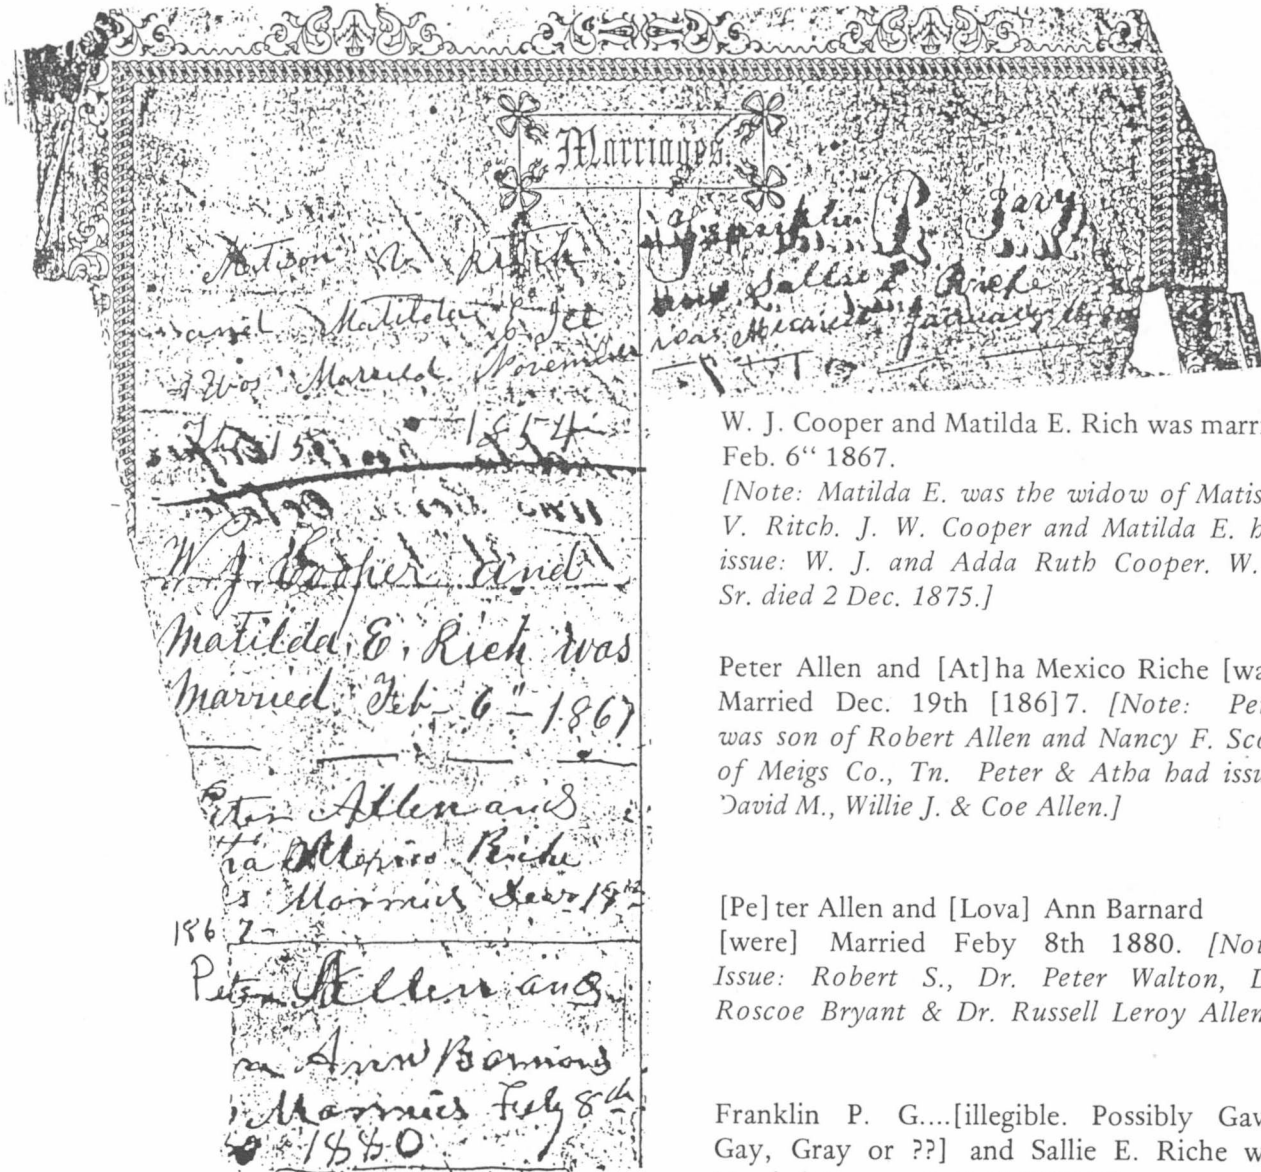 Marriages.
Matison V. Ritch
and Matilda E
Was Married November
15 1854
W J Cooper and
Matilda, E, Rich was
Married, Feb- 6"- 1867
Peter Allen and
ha Mexico Riche
s Married Dec 19th
1867-
Peter Allen and
Ann Barnard
Married Feby 8th
1880
Franklin P.
and Sallie E Riche
was Married January
W. J. Cooper and Matilda E. Rich was marri
Feb. 6“ 1867.
[Note: Matilda E. was the widow of Matis
V. Ritch. J. W. Cooper and Matilda E. h
issue: W. J. and Adda Ruth Cooper. W.
Sr. died 2 Dec. 1875.]
Peter Allen and [At]ha Mexico Riche [wa
Married Dec. 19th [186]7. [Note: Pe
was son of Robert Allen and Nancy F. Sco
of Meigs Co., Tn. Peter & Atha had issu
David M., Willie J. & Coe Allen.]
[Pe]ter Allen and [Lova] Ann Barnard
[were] Married Feby 8th 1880. [Not
Issue: Robert S., Dr. Peter Walton, D
Roscoe Bryant & Dr. Russell Leroy Allen
Franklin P. G....[illegible. Possibly Gav
Gay, Gray or ??] and Sallie E. Riche w